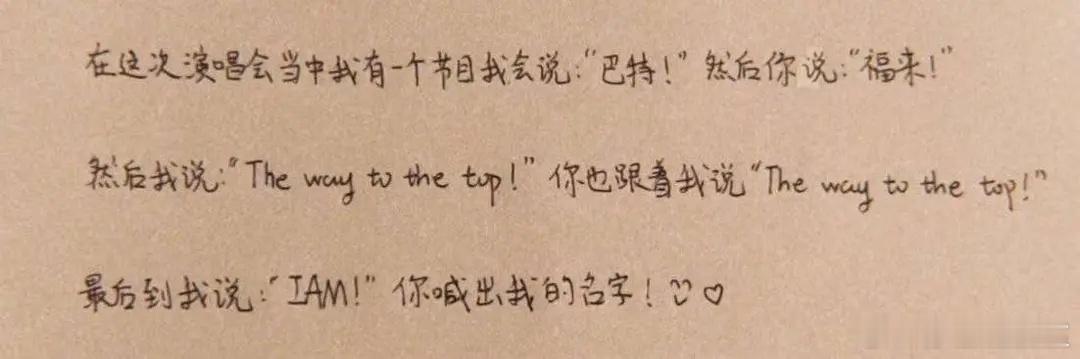 在这次演唱会当中我有一个节目我会说:“巴特!” 然后你说:“福来!”
然后我说:“The way to the top!” 你也跟着我说“The way to the top!”
最后到我说:“IAM!” 你喊出我的名字!